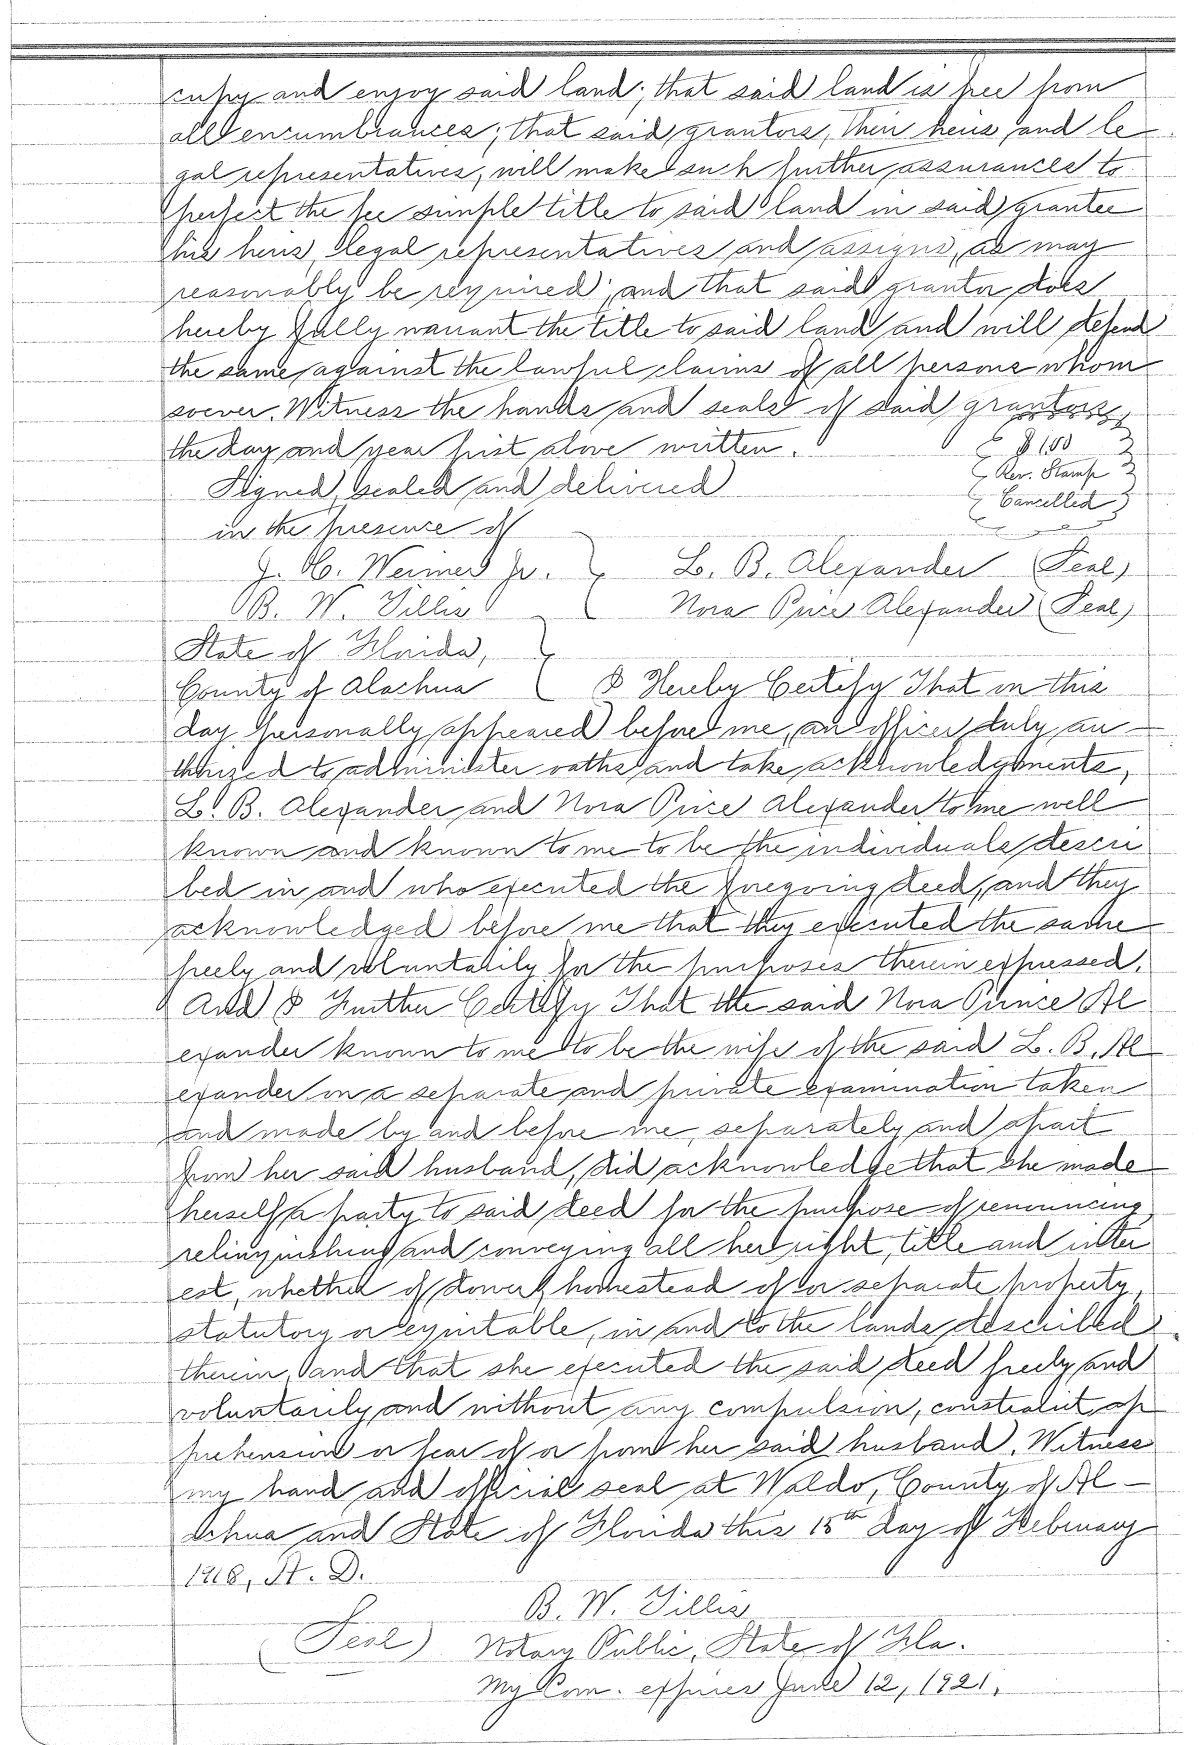 cupy and enjoy said land; that said land is free from
all encumbrances; that said grantors, their heirs and le-
gal representatives, will make such further assurances to
perfect the fee simple title to said land in said grantee
his heirs, legal representatives and assigns, as may
reasonably be required; and that said grantor does
hereby fully warrant the title to said land and will defend
the same against the lawful claims of all persons whom
soever. Witness the hands and seals of said grantors,
the day and year first above written.
$1.50
Rev. Stamp
Cancelled
Signed, sealed and delivered
in the presence of
J. C. Weimer Jr. L. B. Alexander (Seal)
B. W. Tillis Nora Price Alexander (Seal)
State of Florida,
County of Alachua I Hereby Certify That on this
day personally appeared before me, an officer duly au-
thorized to administer oaths and take acknowledgments,
L. B. Alexander and Nora Price Alexander to me well
known and known to me to be the individuals descri
bed in and who executed the foregoing deed, and they
acknowledged before me that they executed the same
freely and voluntarily for the purposes therein expressed.
And I Further Certify That the said Nora Prince Al
exander known to me to be the wife of the said L. B. Al
exander on a separate and private examination taken
and made by and before me, separately and apart
from her said husband, did acknowledge that she made
herself a party to said deed for the purpose of renouncing
relinquishing and conveying all her right, title and inter
est, whether of dower, homestead of or separate property,
statutory or equitable, in and to the lands described
therein, and that she executed the said deed freely and
voluntarily and without any compulsion, constraint, ap
prehension or fear of or from her said husband. Witness
my hand and official seal at Waldo, County of Al-
achua and State of Florida this 15th day of February
1918, A. D.
B. W. Tillis
(Seal) Notary Public, State of Fla.
My Com. expires June 12, 1921.